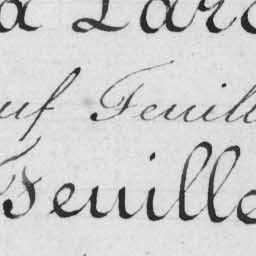 a Lar
uf Feuill
Feuille